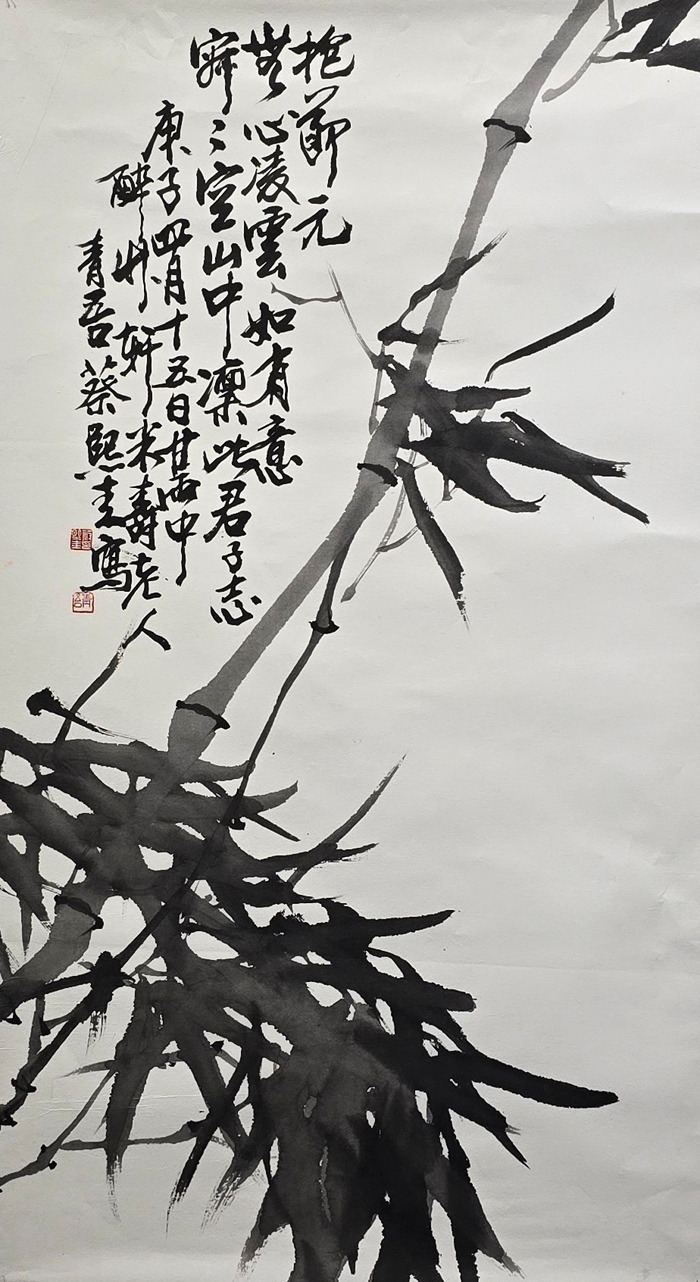 抱節元
無心凌雲如有意
寂〻空山中凜此君子志
庚子四月十五日甘雨中
醉竹軒米壽老人
青吾蔡熙圭寫